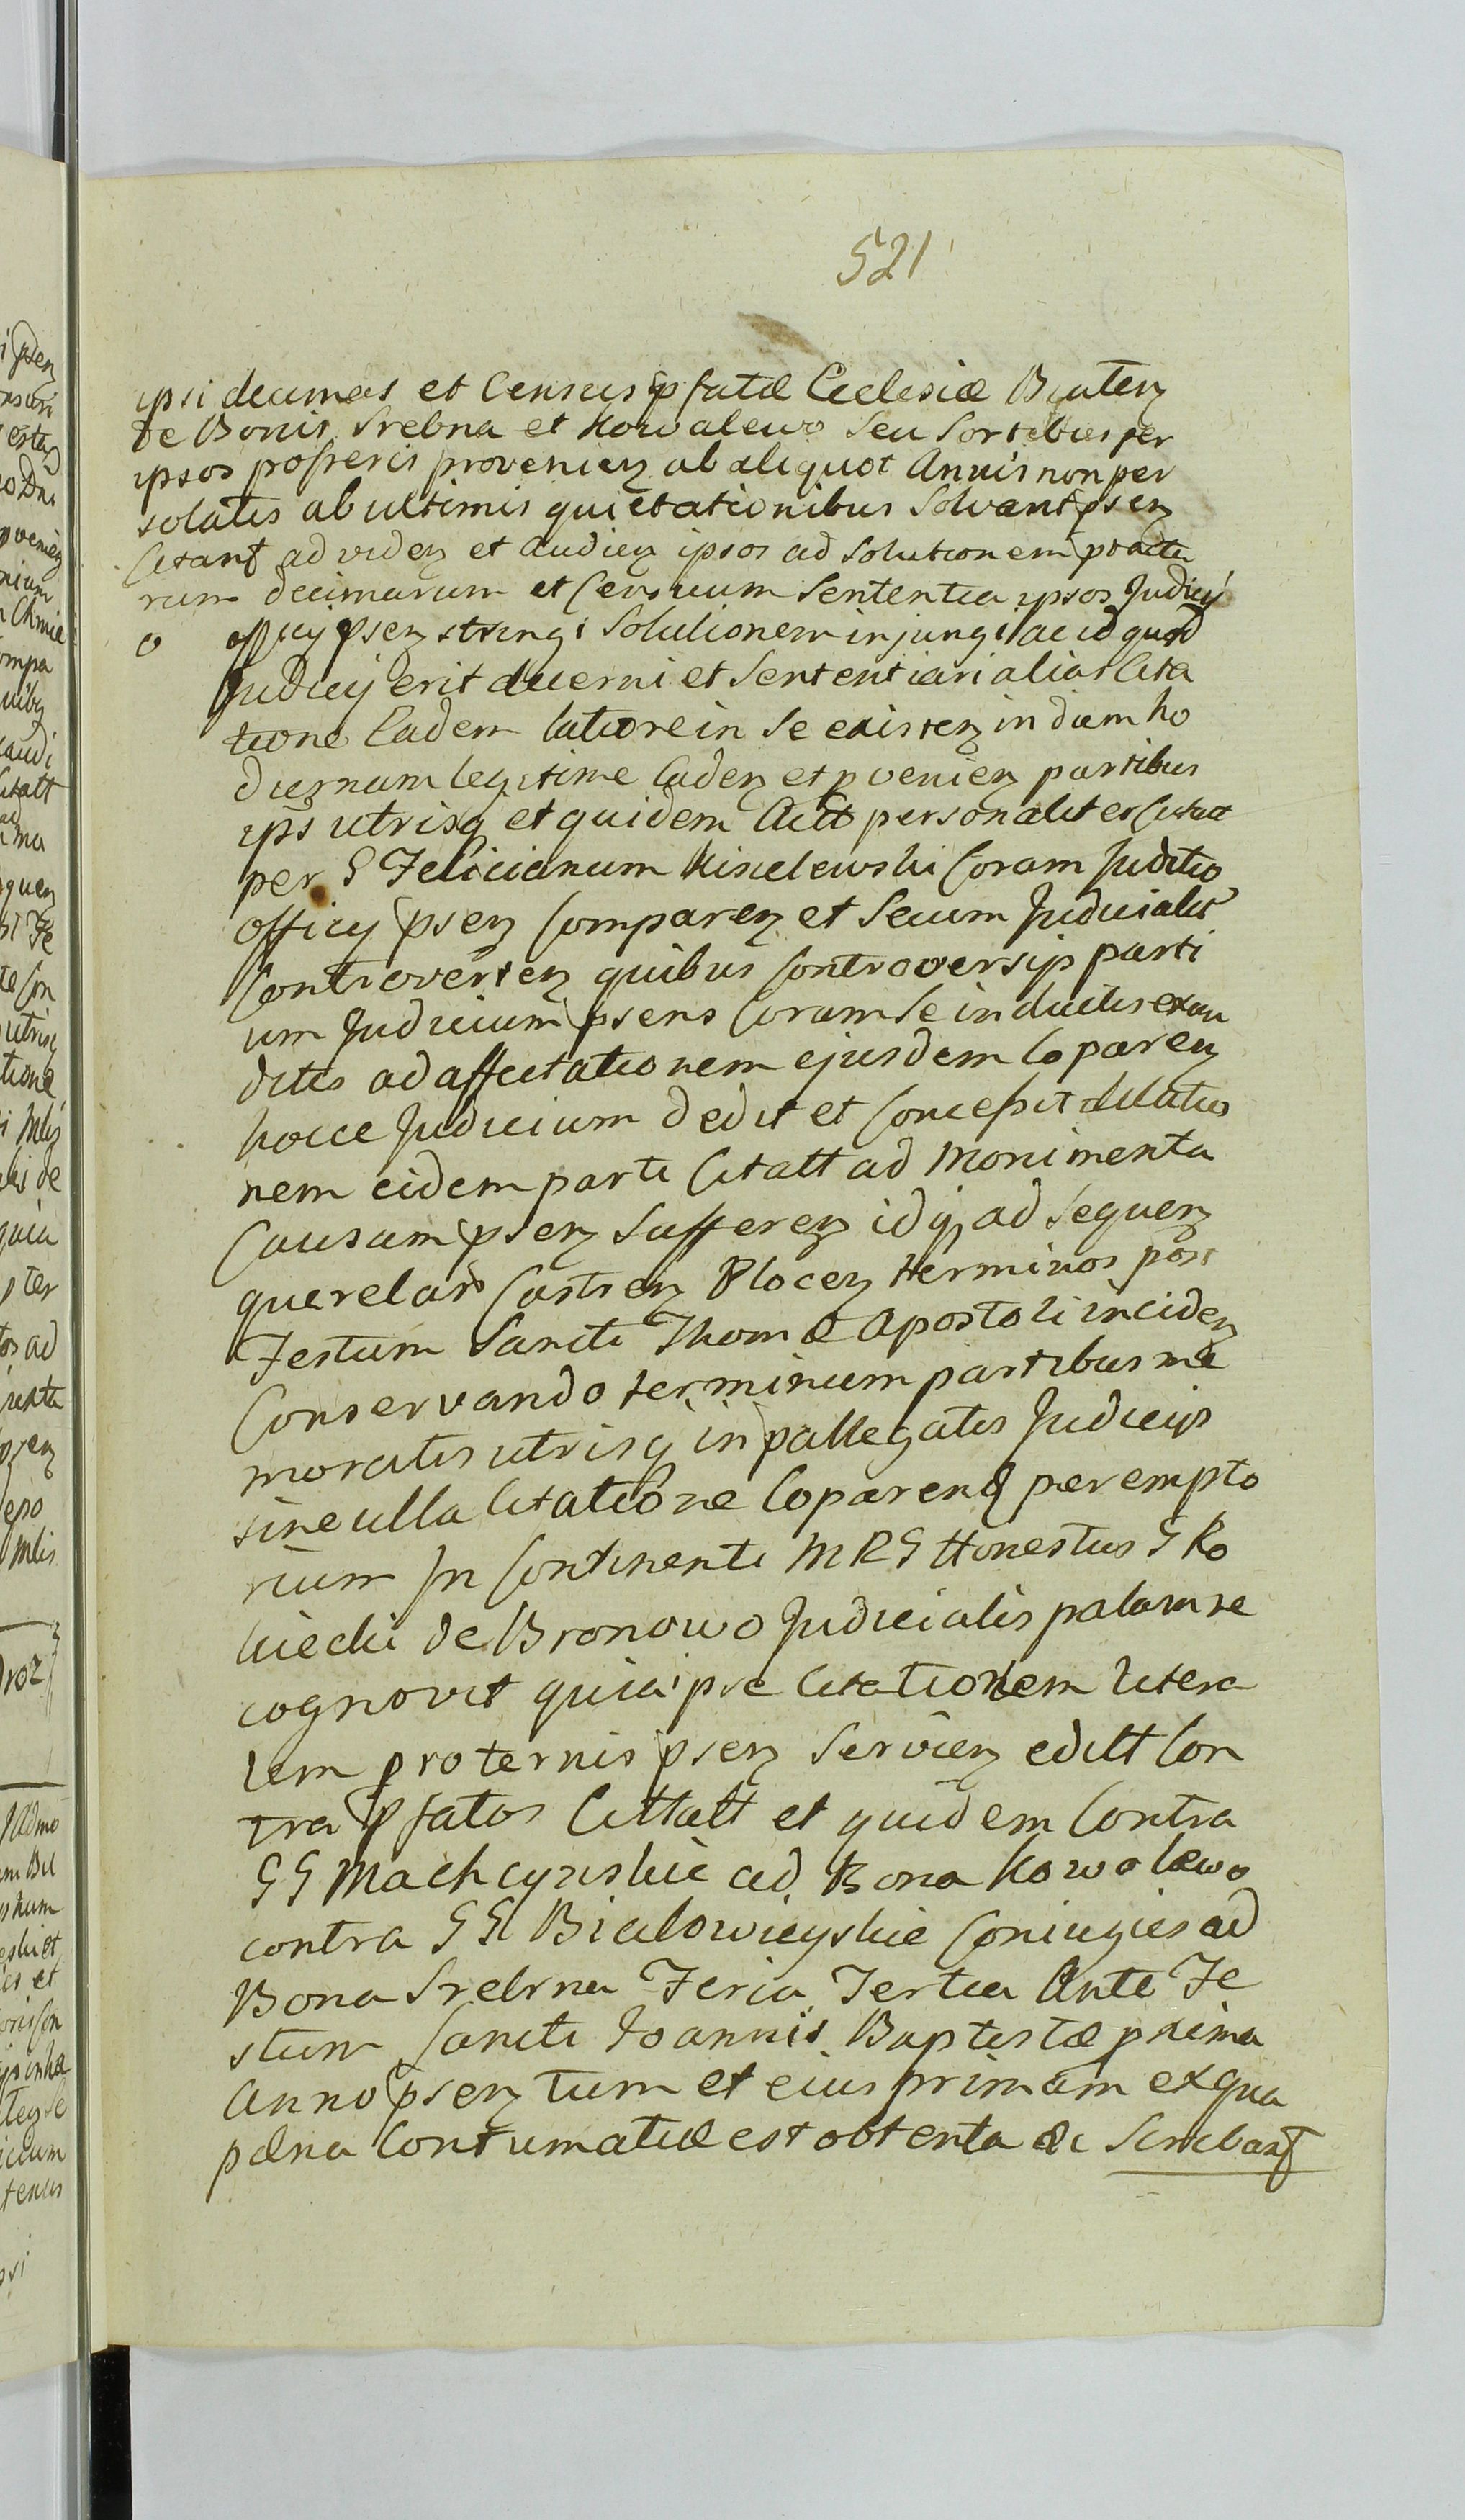 521
ipsi decimas et Census pfatæ Ecclesiæ
de Bonis Srebna et Kowalewo seu Sortibus per
ipsos possessis provenien ab aliquot Annis non per
solatis ab ultimis quietationibus Solvant psen
Citant ad viden et audien ipsos ad solutionem
rum decimarum et Censuum Sententia ipsos Judicij
o officij psen stringi Solutionem injungi ac id quod
Judicij erit decerni et Sententiari alias Cita
tione Eadem latiore in se existen in diem ho
diernam legitime Caden et pvenien partibus
ips utrisq et quidem Actt personaliter Citatt
per G Felicianum Kisielewski Coram Juditio
officij psen Comparen et Secum Judicialit
Controverten quibus Controversijs parti
um Judicium psens Coram Se inductis exau
ditis ad affectationem ejusdem Coparen
hocce Judicium dedit et Concessit dilatio
nem eidem parte Citatt ad Monimenta
Causam psen Sufferen idq ad Sequen
querelar Castren Plocen terminos post
Festum Sancti Thomæ Apostoli inciden
Conservando terminum partibus me
moratis utrisq in pallegatis Judicijs
sine ulla Citatione Coparend perempto
rium In Continenti MRG Honestus G Ro
kicki de Bronowo Judicialis palam re
cognovit quia ipse Citationem litera
lem pro ternis psen Servien editt Con
tra pfatos Cittatt et quidem Contra
GG Machcynskie ad Bona Kowalewo
contra GG Bialowieyskie Coniuges ad
Bona Srebrna Feria Tertia Ante Fe
stum Sancti Joannis Baptistæ pxima
Anno psen tum et eius primam ex qua
pæna Contumatiæ est obtenta &c Scribant